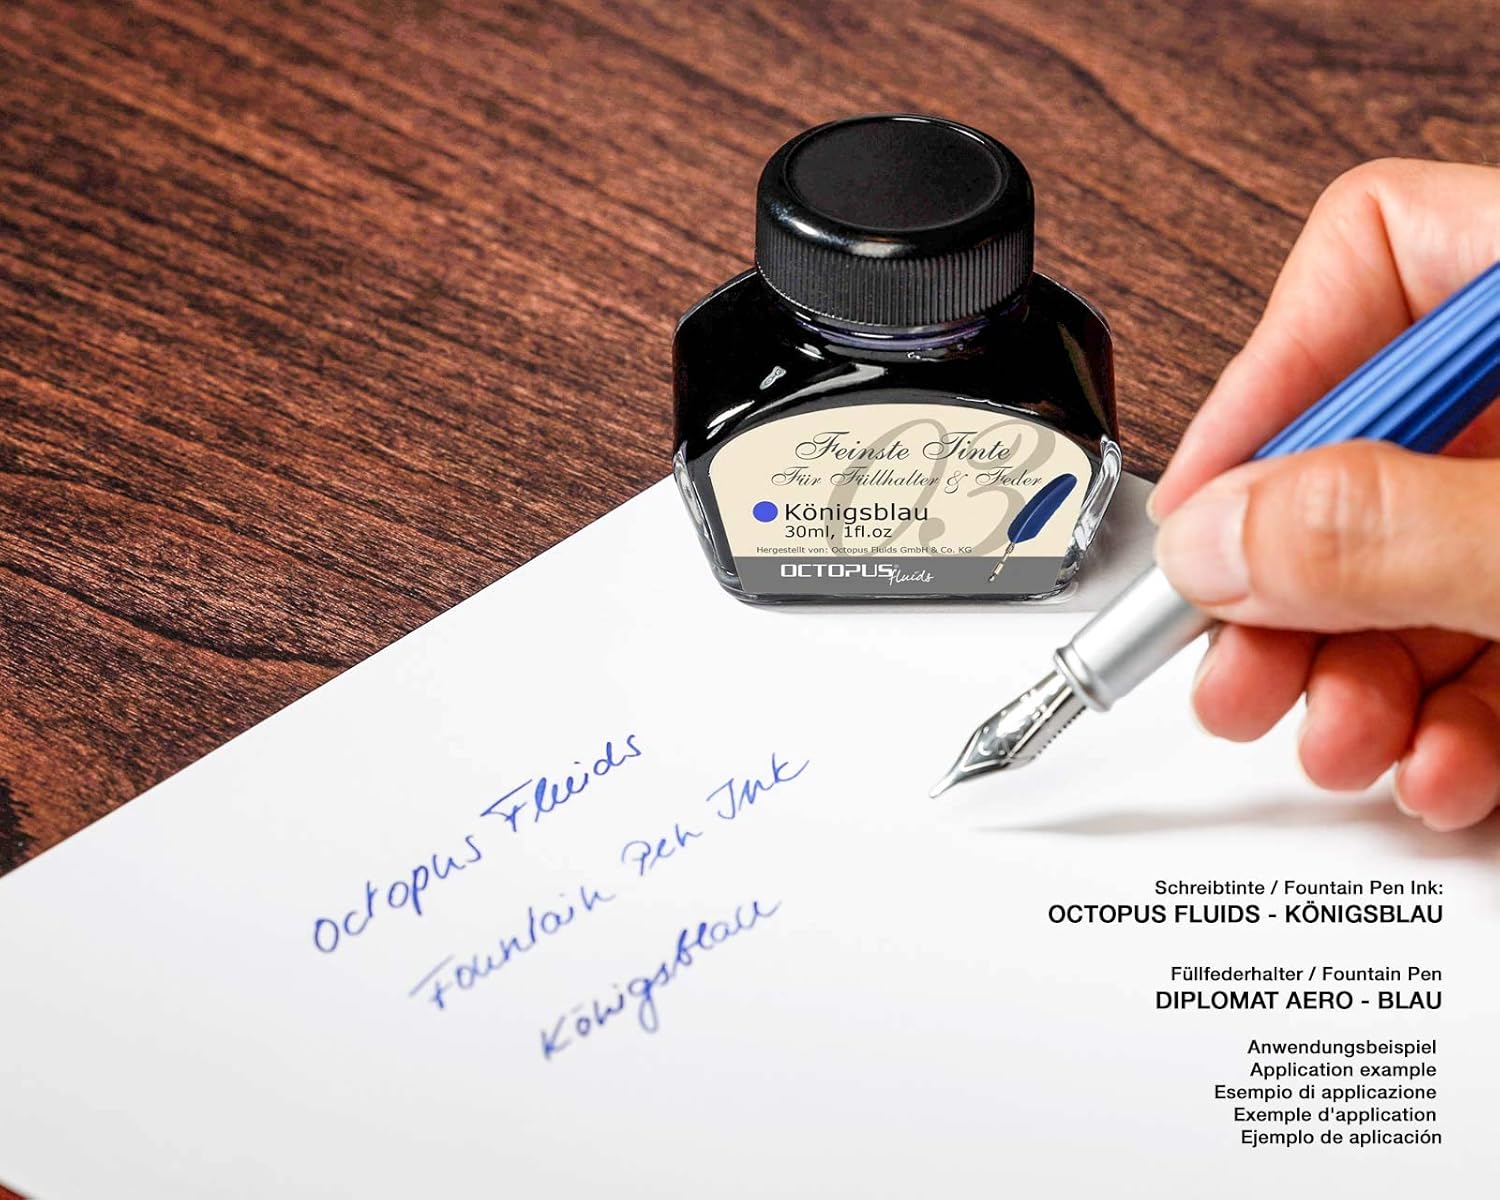 03
Feinste Tinte
Für Füllhalter & Feder
Königsblau
30ml, 1fl.oz
Hergestellt von: Octopus Fluids GmbH & Co. KG
OCTOPUS® fluids
Octopus Fluids
Fountain Pen Ink
Königsblau
Schreibtinte / Fountain Pen Ink:
OCTOPUS FLUIDS - KÖNIGSBLAU
Füllfederhalter / Fountain Pen
DIPLOMAT AERO - BLAU
Anwendungsbeispiel
Application example
Esempio di applicazione
Exemple d'application
Ejemplo de aplicación